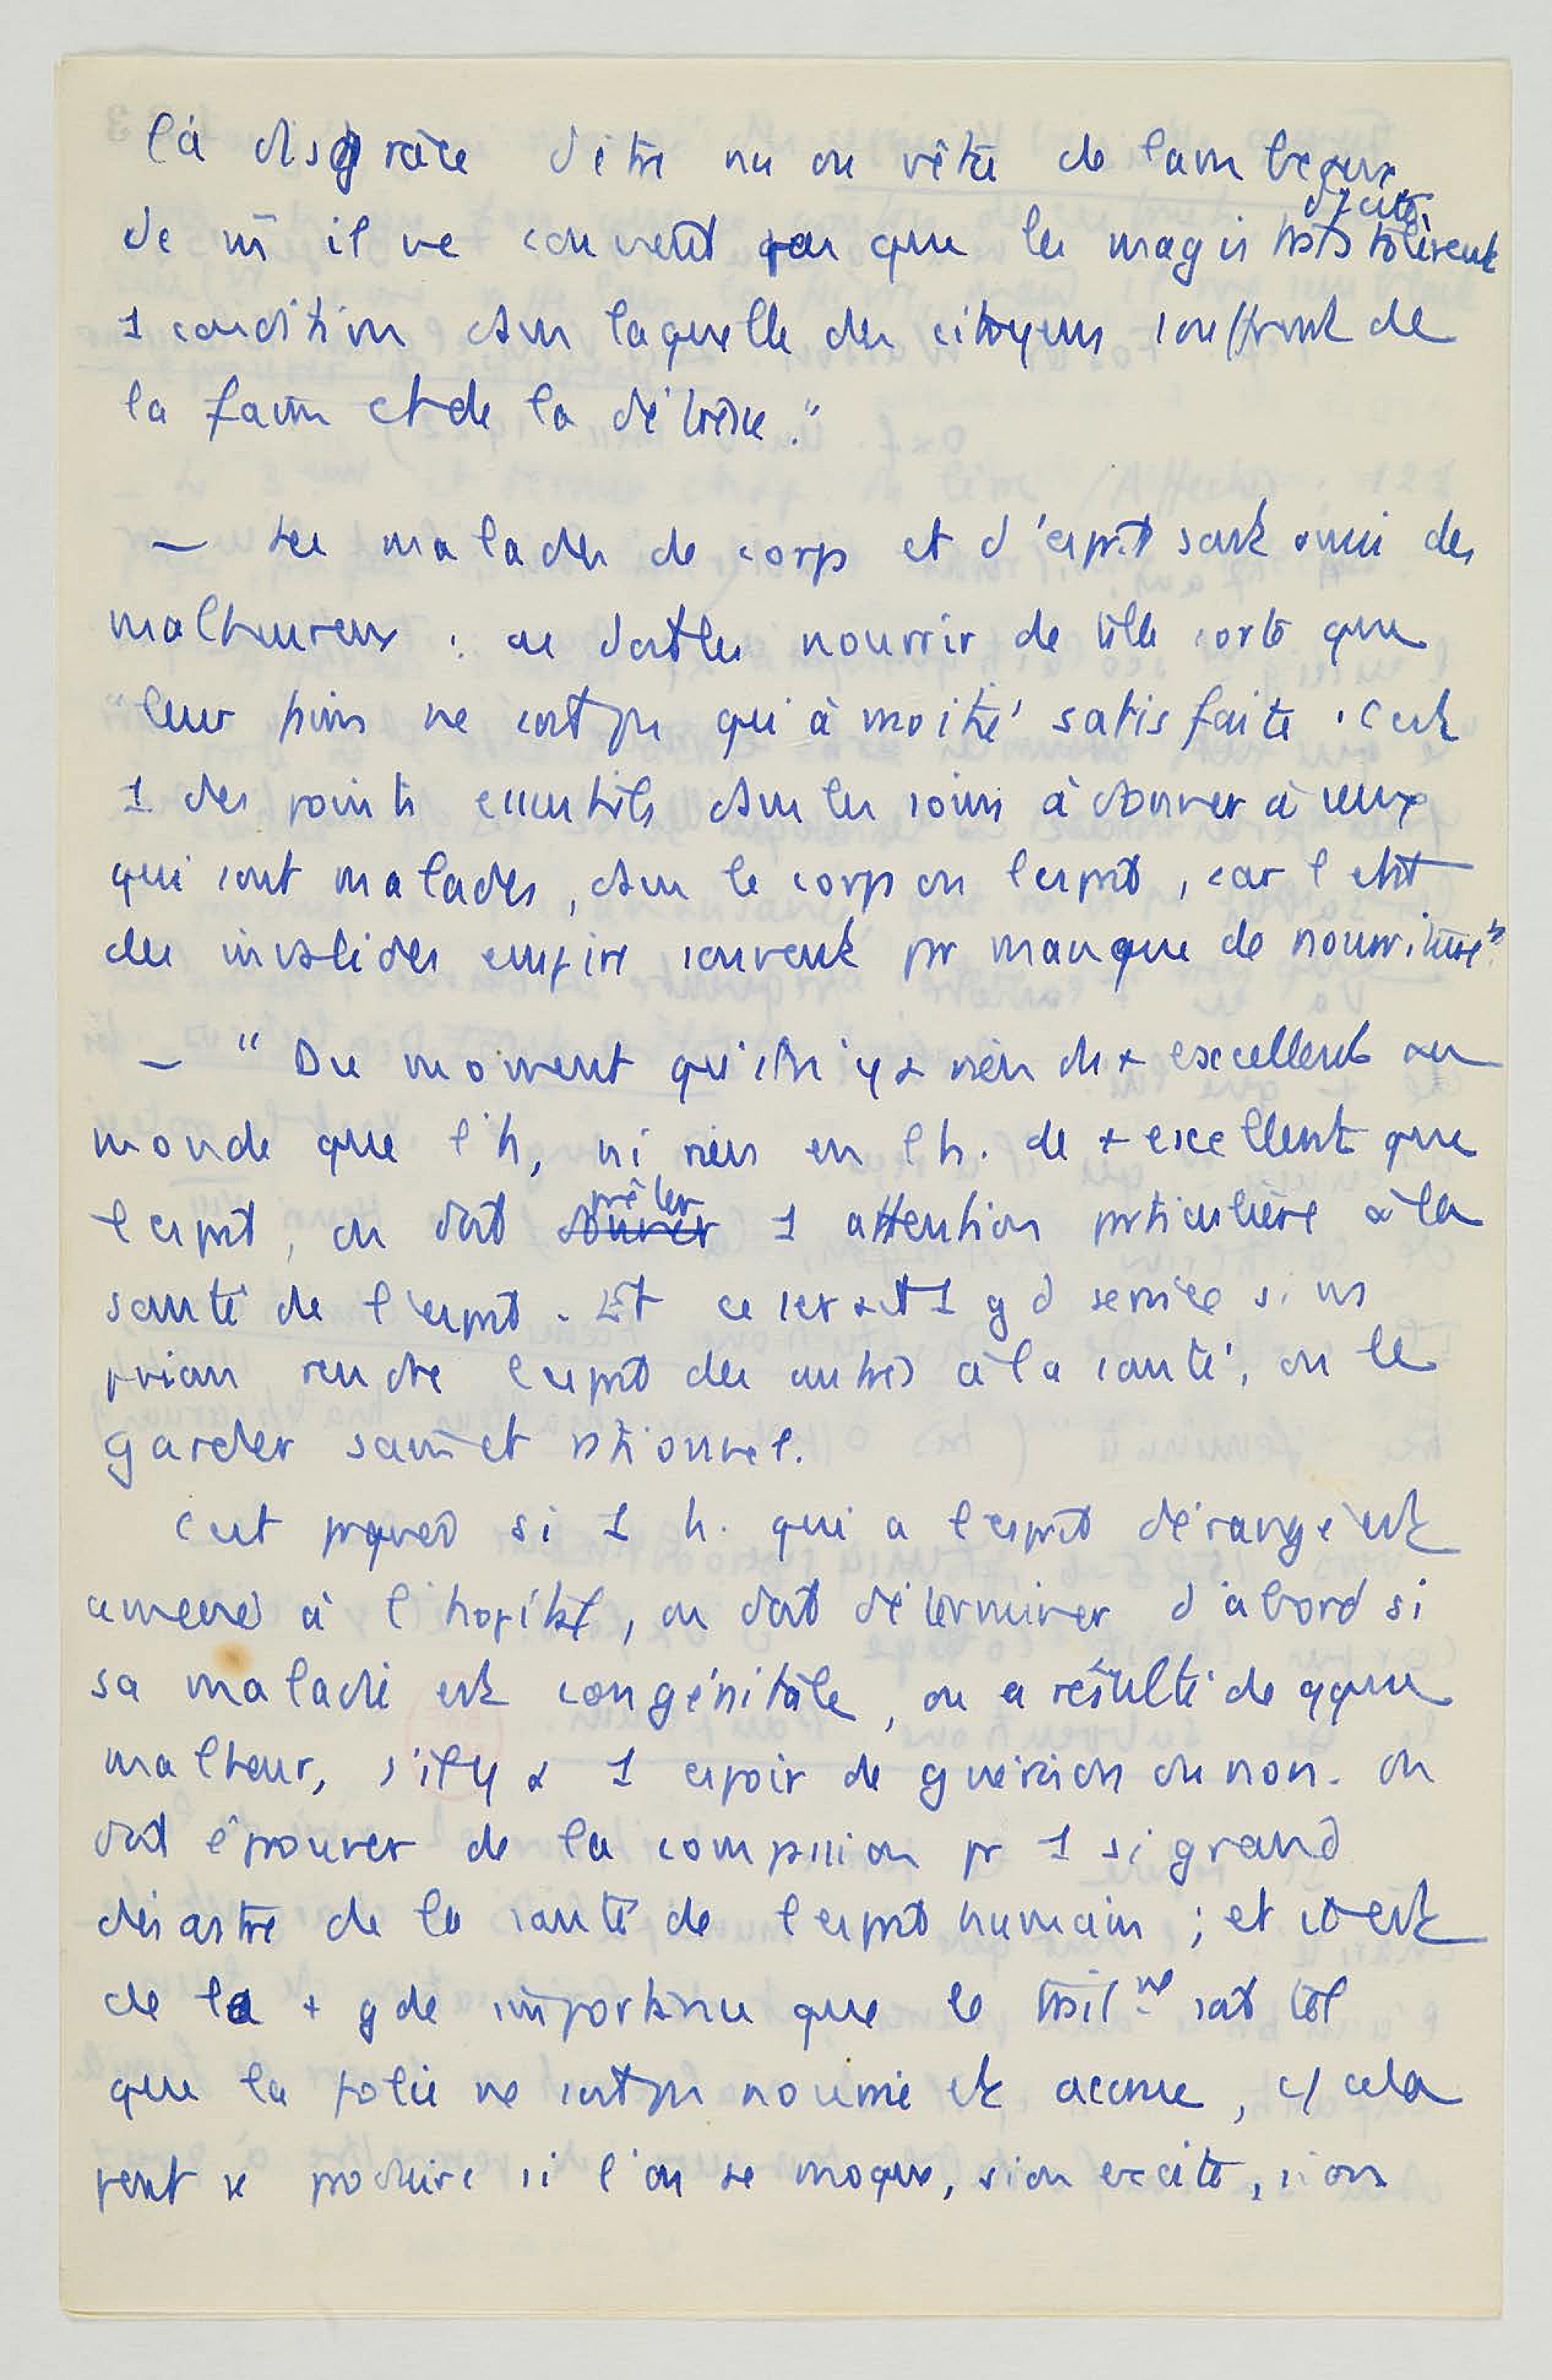 la disgrâce d'être nu ou vêtu de lambeaux
de m il ne convient pas que les magistrats d'1 cité tolèrent
1 condition dans laquelle des citoyens souffrent de
la faim et de la détresse."
— Les malades de corps et d'esprit sont aussi des
malheureux : on doit les nourrir de telle sorte que
"leur faim ne soit pas qu'à moitié satisfaite. C'est
1 des points essentiels dans les soins à donner à ceux
qui sont malades, dans le corps ou l'esprit, car l'état
des invalides empire souvent pr manque de nourriture".
— "Du moment qu'il n'y a rien de + excellent au
monde que l'h, ni rien en l'h. de + excellent que
l'esprit, on doit donner prêter 1 attention particulière à la
santé de l'esprit. Et ce serait 1 gd service si ns
pvions rendre l'esprit des autres à la santé, ou le
garder sain et rationnel.
C'est pquoi si 1 h. qui a l'esprit dérangé est
amené à l'hopital, on doit déterminer d'abord si
sa maladie est congénitale, ou a résulté de qque
malheur, s'il y a 1 espoir de guérison ou non. On
doit éprouver de la compassion pr 1 si grand
désastre de la santé de l'esprit humain ; et il est
de la + gde importance que le trait nt soit tel
que la folie ne soit pas nourrie et accrue, c/ cela
peut se produire si l'on se moque, si on excite, si on